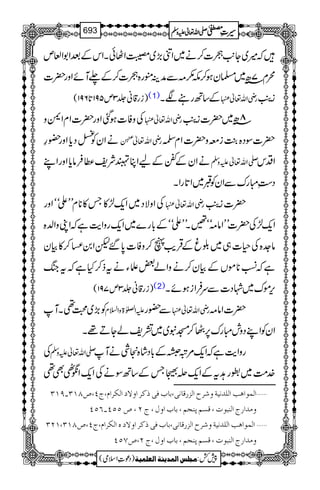 سیرتِ مصطفیٰ صلی اللہ تعالیٰ علیہ وسلم 693
ہیں کہ میری جانب ہجرت کرنے میں اتنی بڑی مصیبت اٹھائی۔ اس کے بعد ابوالعاص
محرم ۷ھ میں مسلمان ہو کر مکہ مکرمہ سے مدینہ منورہ ہجرت کرکے چلے آئے اور حضرت
زینب رضی اللہ تعالیٰ عنہا کے ساتھ رہنے لگے۔(1) (زرقانی جلد ۳ ص ۱۹۵ تا ۱۹۶)
۸ھ میں حضرت زینب رضی اللہ تعالیٰ عنہا کی وفات ہوگئی اور حضرت ام ایمن و
حضرت سودہ بنت زمعہ و حضرت ام سلمہ رضی اللہ تعالیٰ عنہن نے ان کو غسل دیا اور حضورِ
اقدس صلی اللہ تعالیٰ علیہ وسلم نے ان کے کفن کے لیے اپنا تہبند شریف عطا فرمایا اور اپنے
دستِ مبارک سے ان کو قبر میں اتارا۔
حضرت زینب رضی اللہ تعالیٰ عنہا کی اولاد میں ایک لڑکا جس کا نام ’’علی‘‘ اور
ایک لڑکی حضرت ’’امامہ‘‘ تھیں۔ ’’علی‘‘ کے بارے میں ایک روایت ہے کہ اپنی والدہ
ماجدہ کی حیات ہی میں بلوغ کے قریب پہنچ کر وفات پا گئے لیکن ابن عساکر کا بیان
ہے کہ نسب ناموں کے بیان کرنے والے بعض علماء نے یہ ذکر کیا ہے کہ یہ جنگ
یرموک میں شہادت سے سرفراز ہوئے۔(2) (زرقانی جلد ۳ ص ۱۹۷)
حضرت امامہ رضی اللہ تعالیٰ عنہا سے حضور علیہ الصلوٰۃ والسلام کو بڑی محبت تھی۔ آپ
ان کو اپنے دوش مبارک پر بٹھا کر مسجد نبوی میں تشریف لے جاتے تھے۔
روایت ہے کہ ایک مرتبہ حبشہ کے بادشاہ نجاشی نے آپ صلی اللہ تعالیٰ علیہ وسلم کی
خدمت میں بطور ہدیہ کے ایک حلہ بھیجا جس کے ساتھ سونے کی ایک انگوٹھی بھی تھی
1 ……المواهب اللدنية وشرح الزرقانی،باب فی ذکر اولاده الکرام،ج٤،ص٣١٨۔٣١٩
ومدارج النبوت ، قسم پنجم ، باب اول ، ج ٢ ، ص ٤٥٥۔٤٥٦
2 ……المواهب اللدنية وشرح الزرقانی،باب فی ذکر اولاده الکرام،ج٤،ص٣١٨،٣٢١
ومدارج النبوت ، قسم پنجم ، باب اول ، ج ٢ ، ص٤٥٧
پیش کش: مجلس المدینة العلمیة (دعوتِ اسلامی)